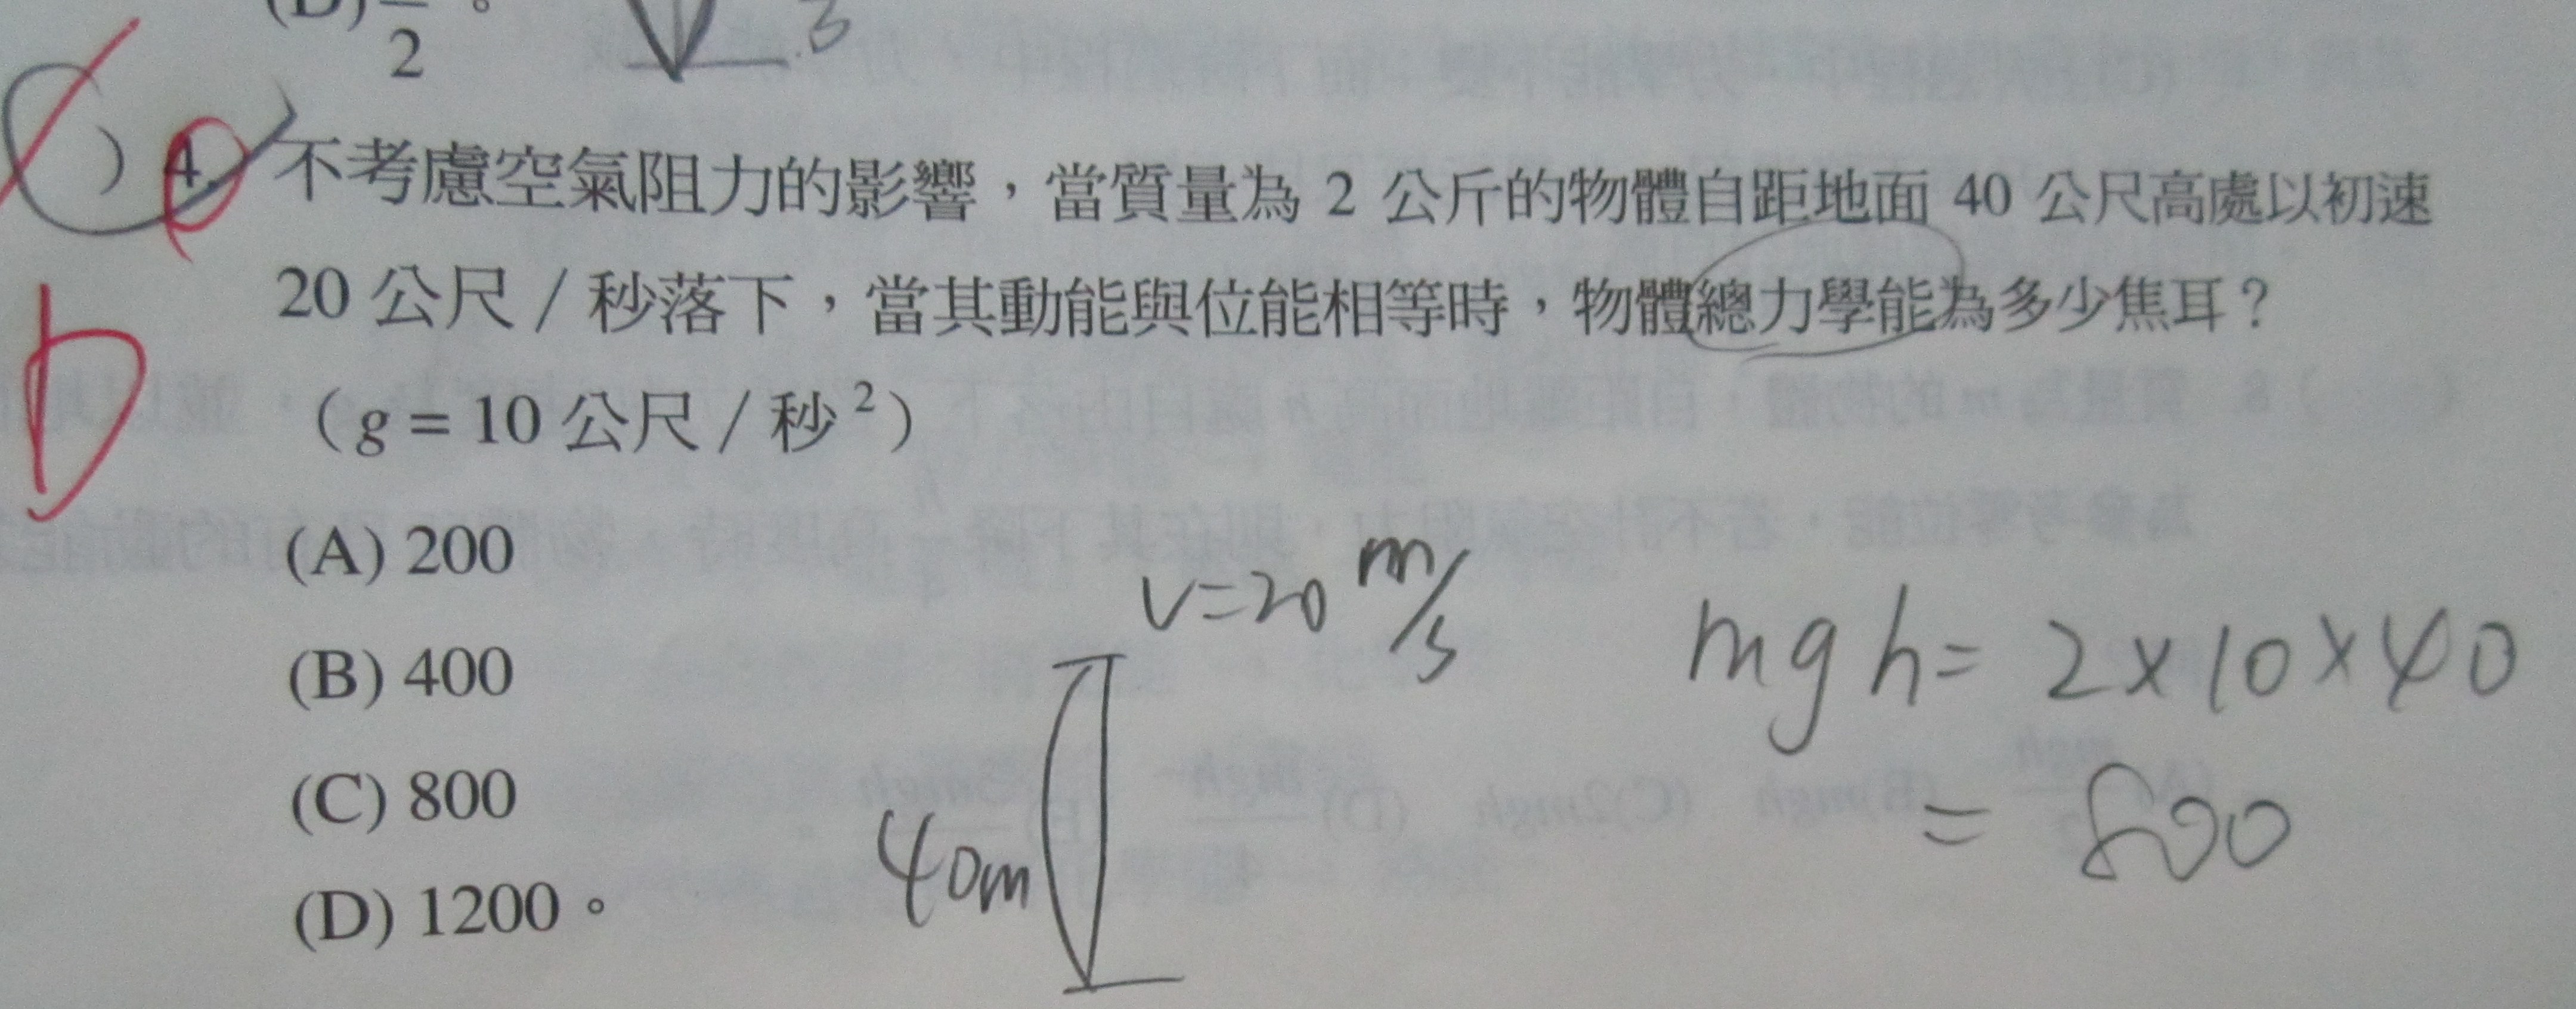 (D) 2 。 3
( C ) 4. 不考慮空氣阻力的影響，當質量為 2 公斤的物體自距地面 40 公尺高處以初速
20 公尺／秒落下，當其動能與位能相等時，物體總力學能為多少焦耳？
D
（g = 10 公尺／秒²）
(A) 200
(B) 400
(C) 800
(D) 1200。
V=20 m/s
40m
mgh = 2×10×40
= 800